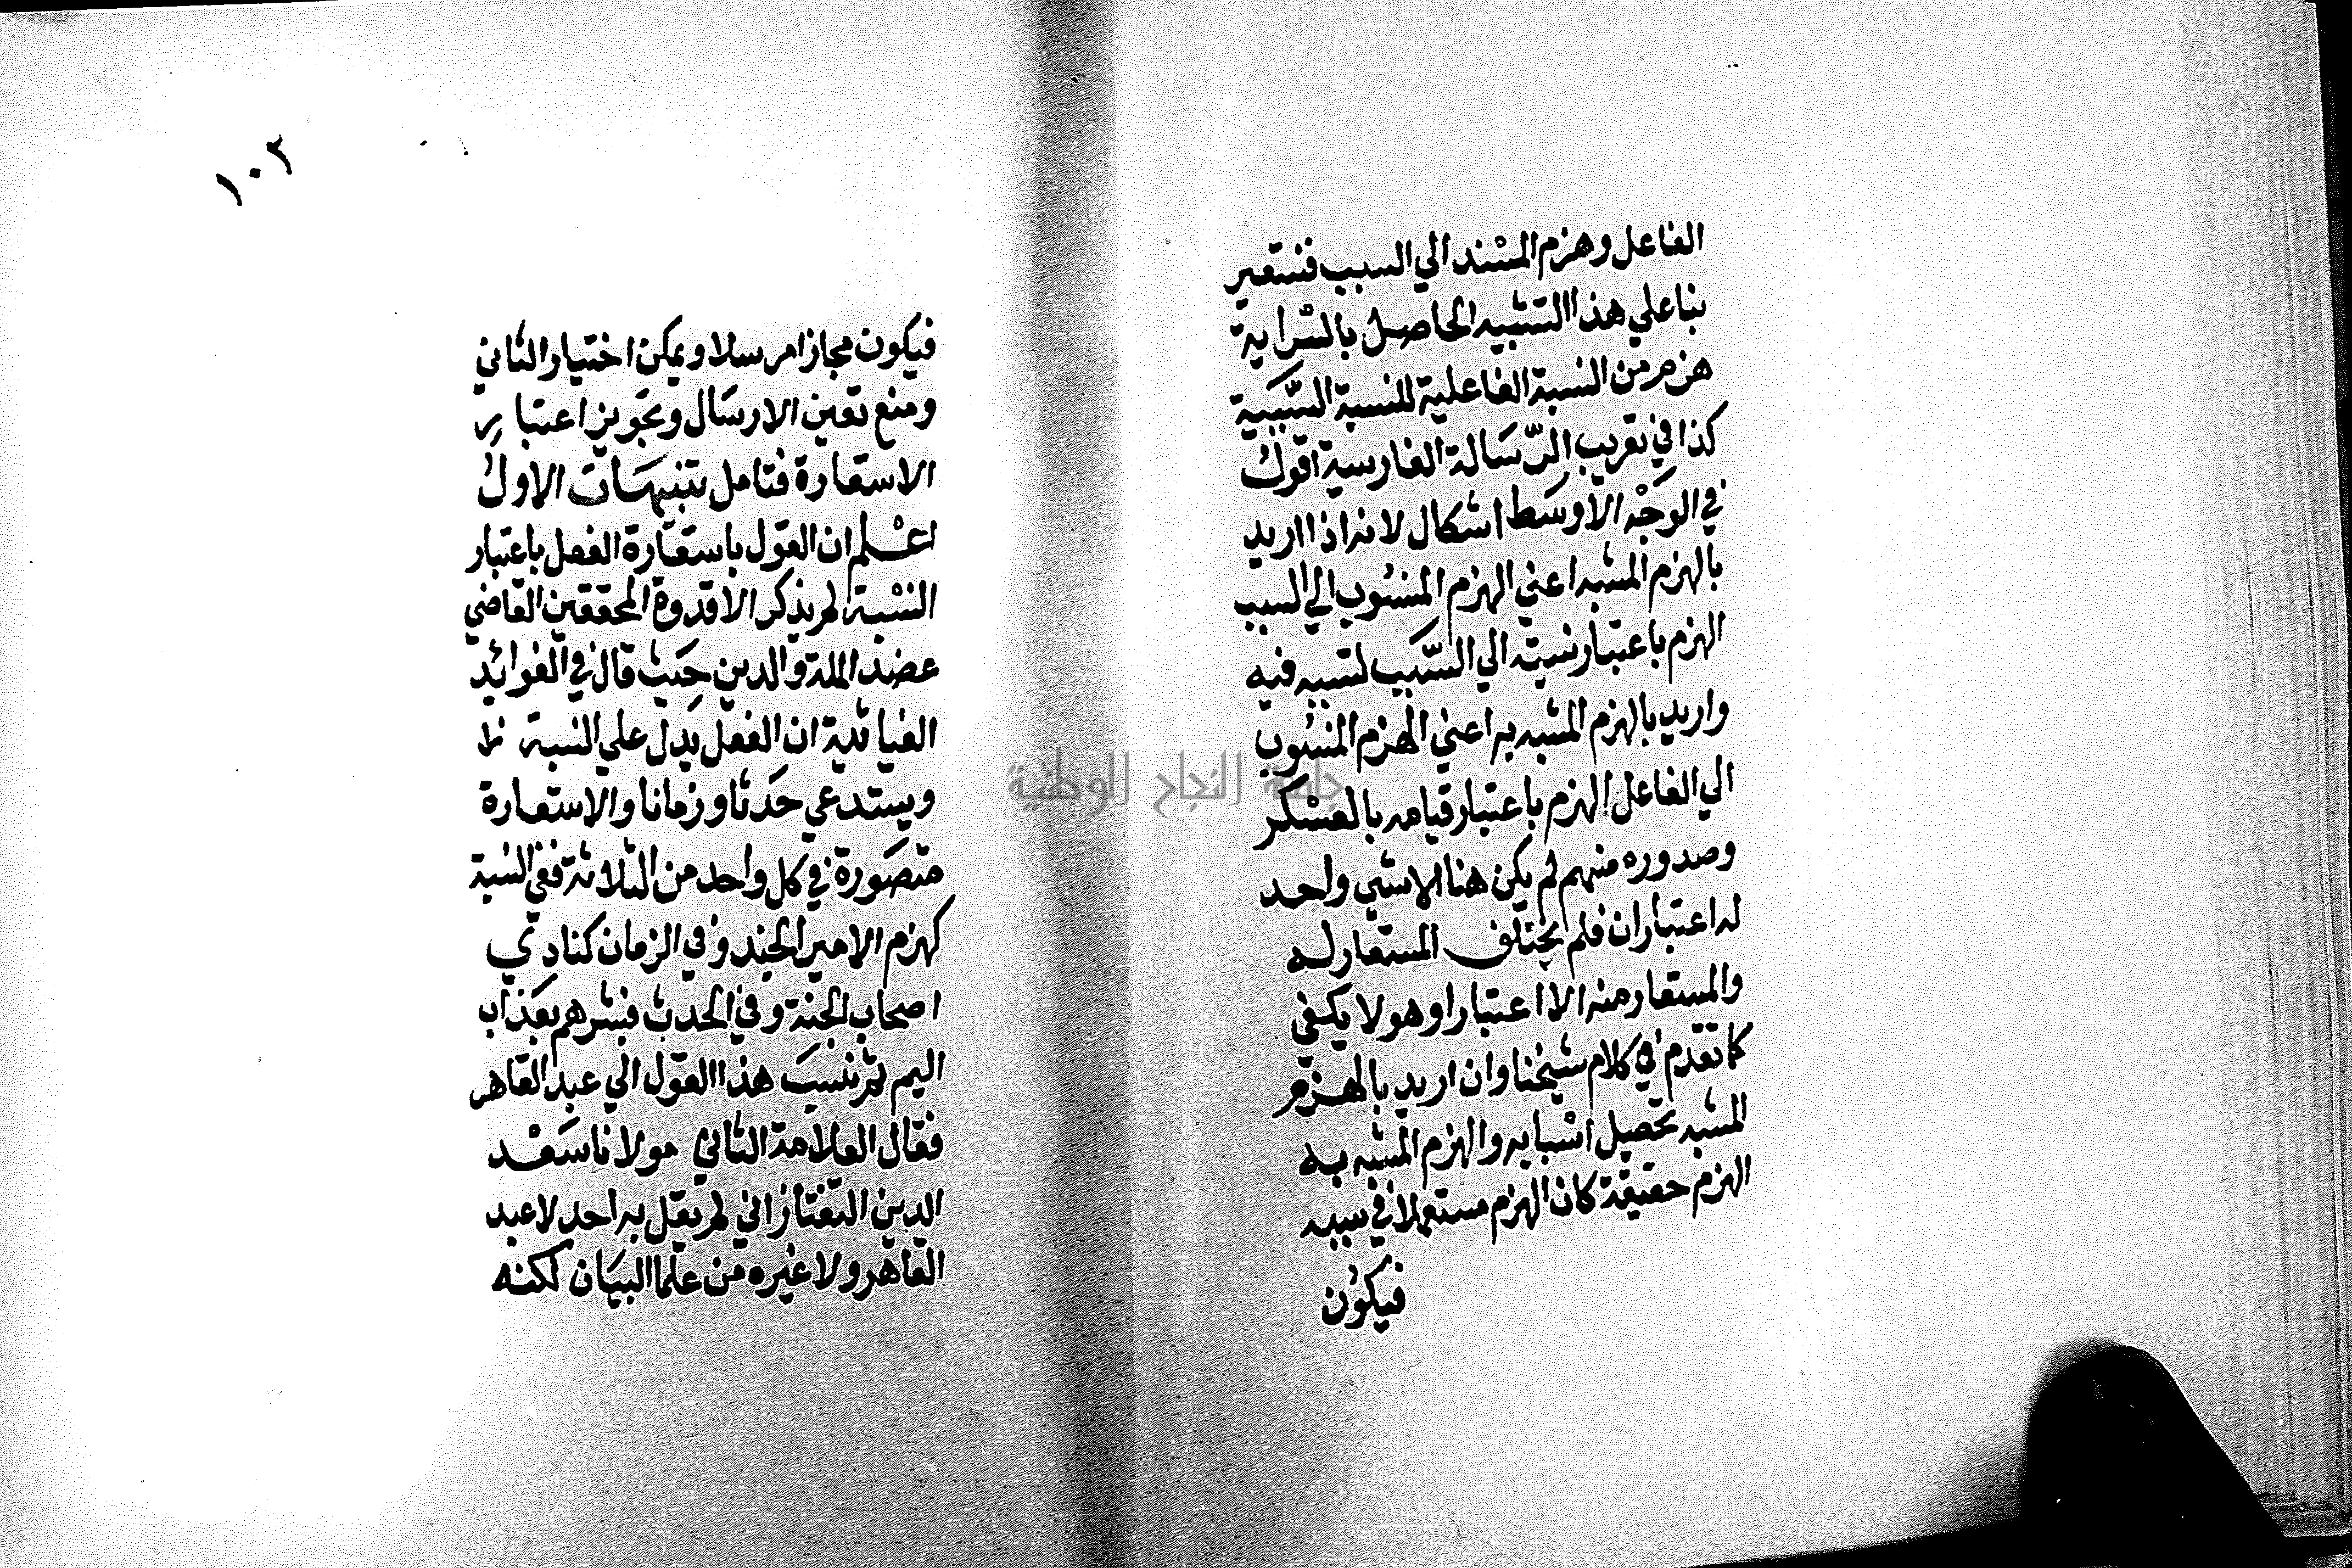 الفاعل وهزم المسند الي السبب فنستعير
بنا علي هذا التشبيه الحاصل بالسراية
هزم من النسبة الفاعلية للنسبة السَّببية
كذا في تعريب الرّسالة الفارسية اقول
في الوجْه الاوسَط اشكال لانه اذا اريد
بالهزم المشبه اعني الهزم المنسُوب الي السبب
الهزم باعتبار نسبته الي السَّبب لتسببه فيه
واريد بالهزم المشبه به اعني الهزم المنسُوب
الي الفاعل الهزم باعتبار قيامه بالعسْكر
وصدوره منهم لم يكن هنا الاشي واحد
له اعتباران فلم يختلف المستعار له
والمستعار منه الا اعتبارا وهو لا يكفي
كما تقدم في كلام شيخنا وان اريد بالهزم
المشبه تحصيل اسْبابه والهزم المشبه به
الهزم حقيقة كان الهزم مستعملا في سببه
فيكون
١٠٣
فيكون مجازا مرسلا ويمكن اختيار الثاني
ومنع تعين الارسَال وتجويز اعتبار
الاستعارة فتامل تنبيهَات الاول
اعْلم ان القول باستعَارة الفعل باعتبار
النسْبة لم يذكر الا قدوة المحققين القاضي
عضد الملة والدين حَيث قال في الفوائد
الغياثية ان الفعل يدل علي النسبة
ويستدعي حَدثا وزمانا والاستعارة
متصَورة في كل واحد من الثلاثة ففي النسبة
كهزم الامير الجند وفي الزمان كنادي
اصحاب الجنة وفي الحدث فبشرهم بعَذاب
اليم ثم نسبَ هذا القول الي عبد القاهر
فقال العلامة الثاني مولانا سَعْد
الدين التفتازاني لم يقل به احد لا عبد
القاهر ولا غيره من علما البيَان لكنه
جامعة النجاح الوطنية